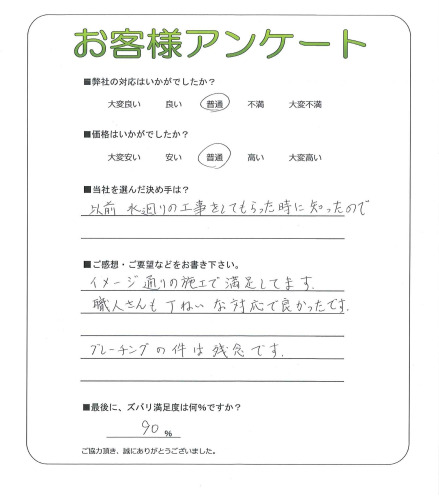 お客様アンケート
■弊社の対応はいかがでしたか?
大変良い 良い 普通 不満 大変不満
■価格はいかがでしたか?
大変安い 安い 普通 高い 大変高い
■当社を選んだ決め手は?
以前 水廻りの工事をしてもらった時に知ったので
■ご感想・ご要望などをお書き下さい。
イメージ通りの施工で満足してます.
職人さんも丁ねいな対応で良かったです.
グレーチングの件は残念です.
■最後に、ズバリ満足度は何%ですか?
90 %
ご協力頂き、誠にありがとうございました。